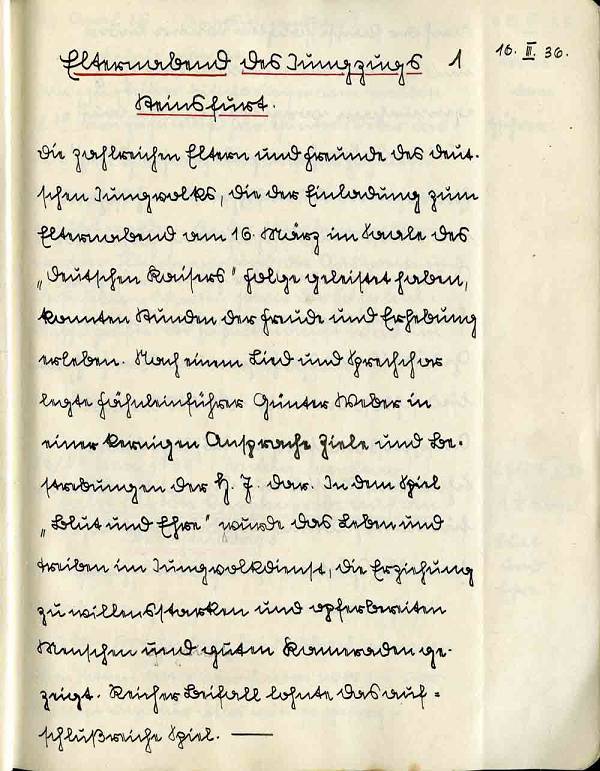 Elternabend des Jungzugs 1
16. III. 36.
Steinsfurt.
Die zahlreichen Eltern und Freunde des deut-
schen Jungvolks, die der Einladung zum
Elternabend am 16. März im Saale des
„deutschen Kaisers" folge geleistet haben,
konnten Stunden der Freude und Erhebung
erleben. Nach einem Lied und Sprechchor
legte Fähnleinführer Günter Weber in
einer kernigen Ansprache Ziele und Be-
strebungen der H. J. dar. In dem Spiel
„Blut und Ehre" wurde das Leben und
treiben im Jungvolkdienst, die Erziehung
zu willensstarken und opferbereiten
Menschen und guten Kameraden ge-
zeigt. Reicher Beifall lohnte das auf-
schlußreiche Spiel. —